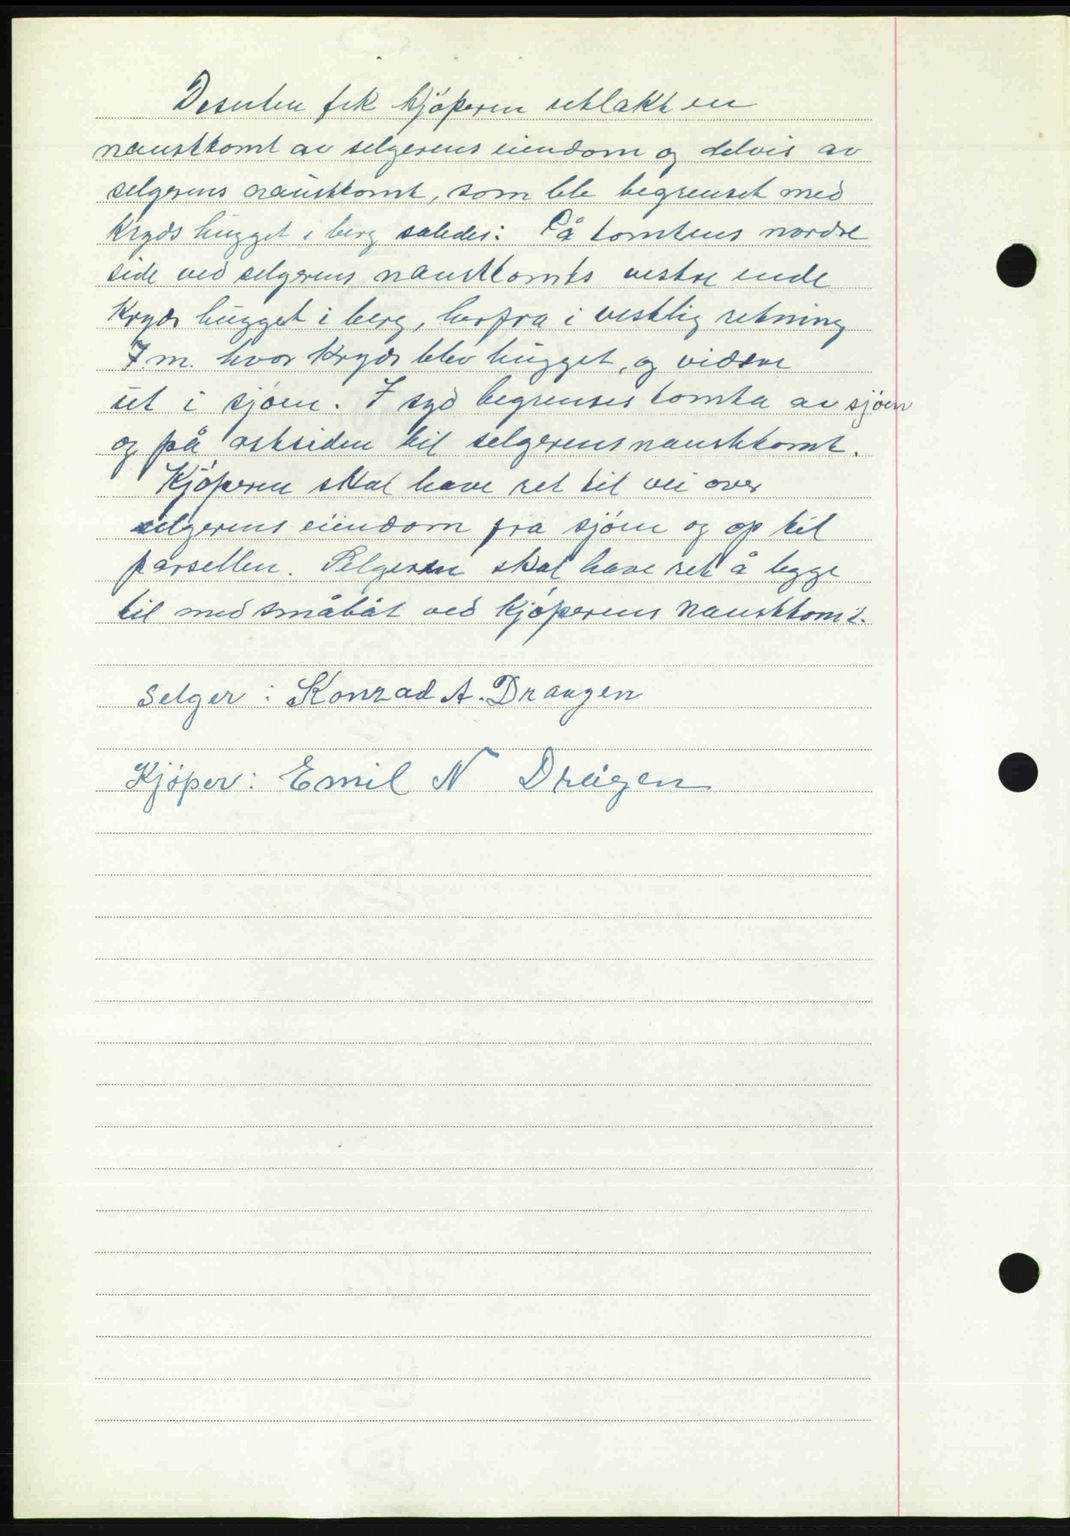 Desuten fik kjöperen utlakt en
nausttomt av selgerens eiendom og delvis av
selgerens nausttomt, som ble begrenset med
Kryds hugget i berg således: På tomtens nordre
side ved selgerens nausttomts vestre ende
Kryds hugget i berg, herfra i vestlig retning
7 m. hvor Kryds blev hugget, og videre
ut i sjöen. I syd begrenses tomta av sjöen
og på östsiden til selgerens nausttomt.
Kjöperen skal have ret til vei over
selgerens eiendom fra sjöen og op til
parsellen. Selgeren skal have ret å legge
til med småbåt ved kjöperens nausttomt.
Selger: Konrad A. Draugen
Kjöper: Emil N Draugen